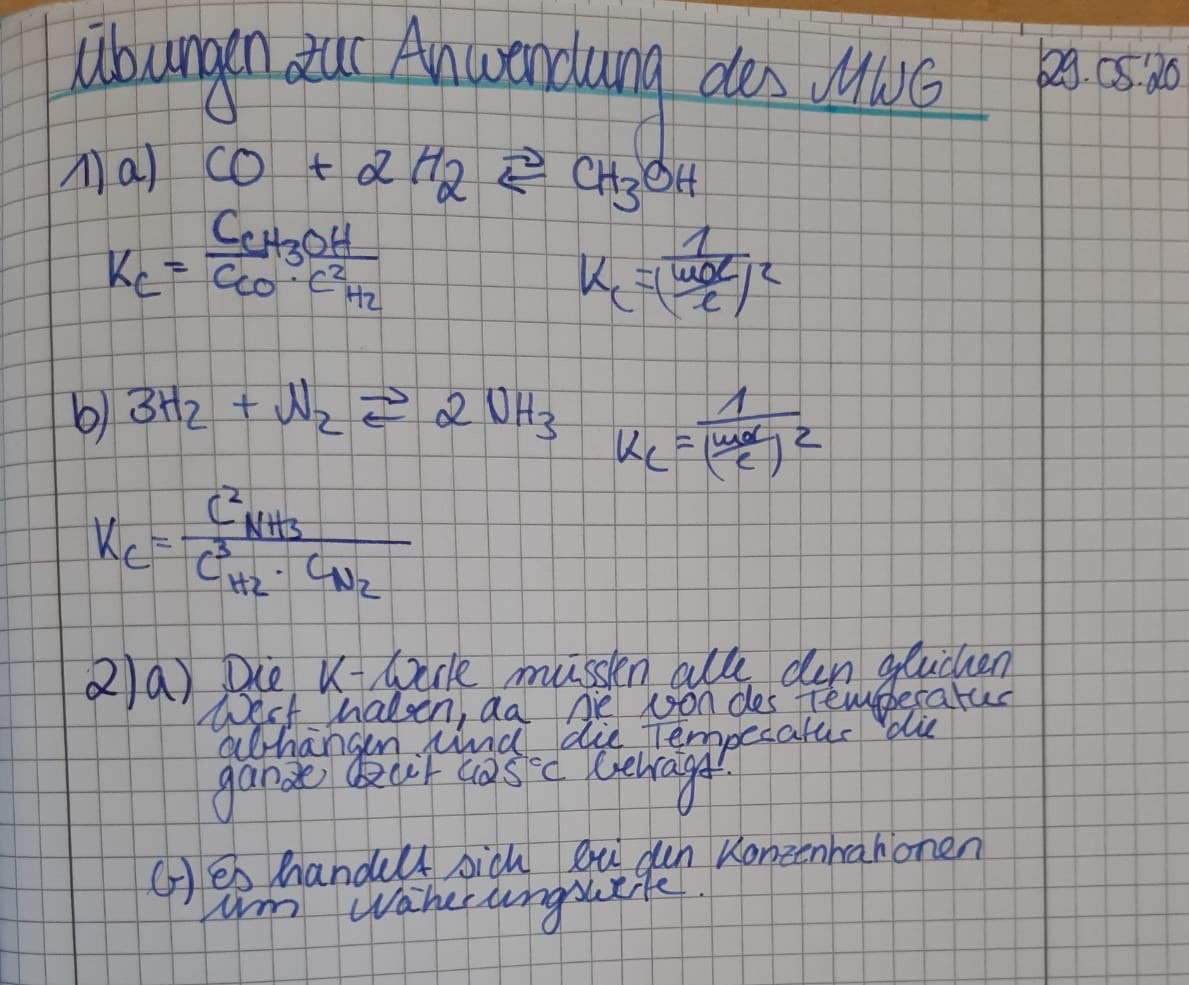 Übungen zur Anwendung des MWG 29.05.20
1) a) CO + 2 H2 ⇌ CH3OH
Kc = C CH3OH / C CO · C² H2 Kc = 1 / (mol/l)²
b) 3H2 + N2 ⇌ 2 NH3 Kc = 1 / (mol/l)²
Kc = C² NH3 / C³ H2 · C N2
2) a) Die K-Werte müssten alle den gleichen
Wert haben, da sie von des Temperatur
abhängen und die Temperatur die
ganze Zeit 425°C beträgt.
b) Es handelt sich bei den Konzentrationen
um Näherungswerte.